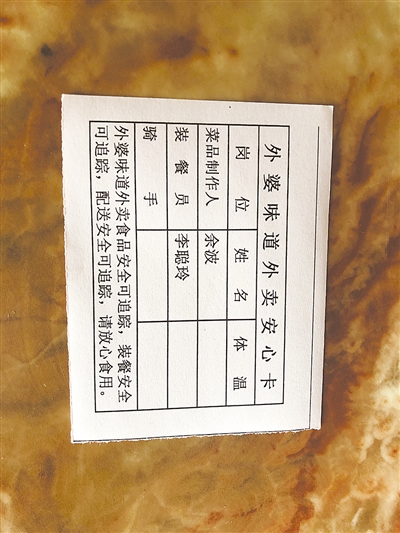 外婆味道外卖安心卡
岗位 姓名 体温
菜品制作人 余波
装餐员 李聪玲
骑手
外婆味道外卖食品安全可追踪，装餐安全
可追踪，配送安全可追踪，请放心食用。